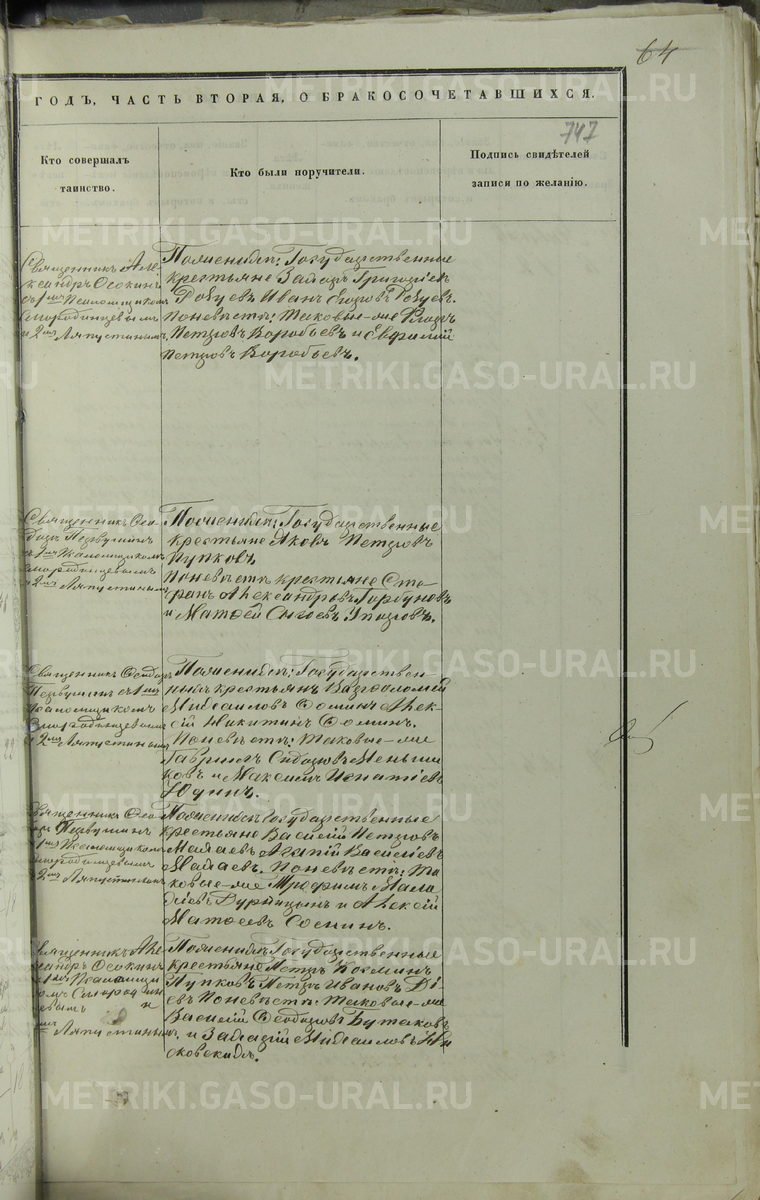 64
ГОДЪ, ЧАСТЬ ВТОРАЯ, О БРАКОСОЧЕТАВШИХСЯ.
747
Кто совершалъ
таинство.
Кто были поручители.
Подпись свидѣтелей
записи по желанію.
Священникъ Але-
ксандръ Осокинъ
съ 1мъ Псаломщикомъ
Смородинцевымъ
и 2мъ Ляпустинымъ
По женихѣ: Государственные
крестьяне Захаръ Григорьевъ
Иванъ
По невѣстѣ: таковые-же
Петровъ Воробьевъ и Евфимій
Петровъ Воробьевъ.
Священникъ Ѳео-
доръ Первушинъ
съ 1мъ Псаломщикомъ
Смородинцевымъ
и 2мъ Ляпустинымъ
По женихѣ: Государственные
крестьяне Яковъ Петровъ
Пупковъ
По невѣстѣ крестьяне Сте-
Александровъ Горбуновъ
и Матѳей
Священникъ Ѳеодоръ
Первушинъ съ 1мъ
Псаломщикомъ
Смородинцевымъ
и 2мъ Ляпустинымъ
По женихѣ: Государствен-
ные крестьяне Варѳоломей
Михаиловъ Ѳоминъ Алек-
сѣй Никитинъ Ѳоминъ.
По невѣстѣ: таковые-же
Гавріилъ Сидоровъ Меньши-
ковъ и Максимъ Игнатіевъ
Юдинъ.
Священникъ Ѳео-
доръ Первушинъ
съ 1мъ Псаломщикомъ
Смородинцевымъ
2мъ Ляпустинымъ
По женихѣ Государственные
крестьяне Василій Петровъ
Малаевъ Агапій Василіевъ
Малаевъ. По невѣстѣ: та-
ковые-же Трофимъ
Дурницынъ и Алексѣй
Матѳеевъ Соснинъ.
Священникъ Але-
ксандръ Осокинъ
съ 1мъ Псаломщи-
комъ Смородин-
цевымъ и
2мъ Ляпустинымъ
По женихѣ Государственные
крестьяне Петръ Козминъ
Пупковъ Петръ Ивановъ
По невѣстѣ: таковые-же
Василій Ѳеодоровъ Бутаковъ
и Михаиловъ
METRIKI.GASO-URAL.RU